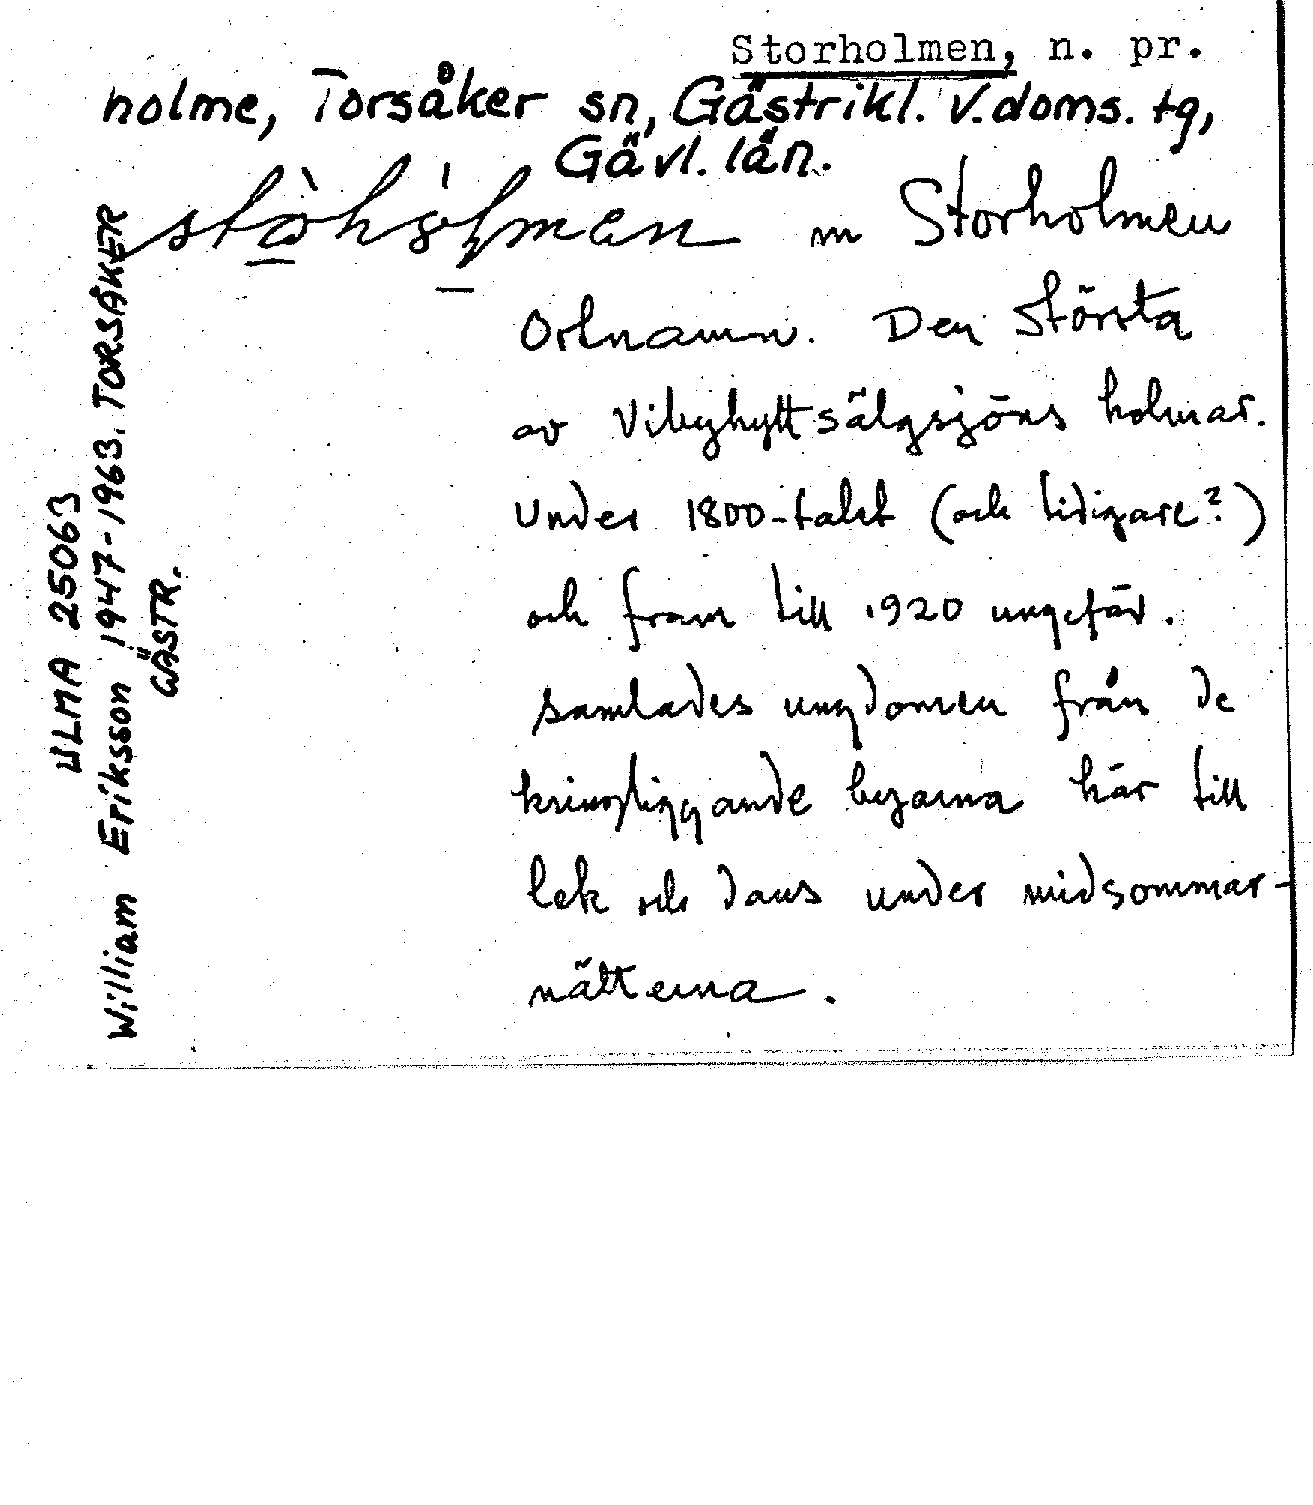 Storholmen, n. pr.
holme, Torsåker sn, Gästrikl. V. doms. tg,
Gävl. län.
m Storholmen
Ortnamn. Den största
av Vibyhyttsälgsjöns holmar.
Under 1800-talet (och tidigare?)
och fram till 1920 ungefär.
samlades ungdomen från de
kringliggande byarna här till
lek och dans under midsommar-
nätterna.
ULMA 25063
William Eriksson 1947-1963. TORSÅKER
GÄSTR.